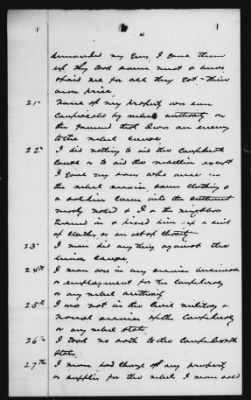 demanded my Guns, I gave them
up they took some meat &
paid me for all they got - their
own price.
21st None of my property was ever
Confiscated by rebel authority on
the ground that I was an enemy
to the rebel cause
22nd I did nothing to aid the Confederate
Cause or to aid the rebellion except
I gave my son who was in
the rebel service, some clothing &
a soldier
noted & I & a neighbor
furnished a him a suit
of Clothes as an act of Charity.
23" I never did anything against the
Union Cause.
24th I never was in any service business
or employment for the Confederacy
or any rebel authority
25th I was not in the Civil military or
naval service of the Confederacy
or any rebel state.
26th I took no oath to the Confederate
States.
27th I never had charge of any property
or supplies for the rebel I never sold